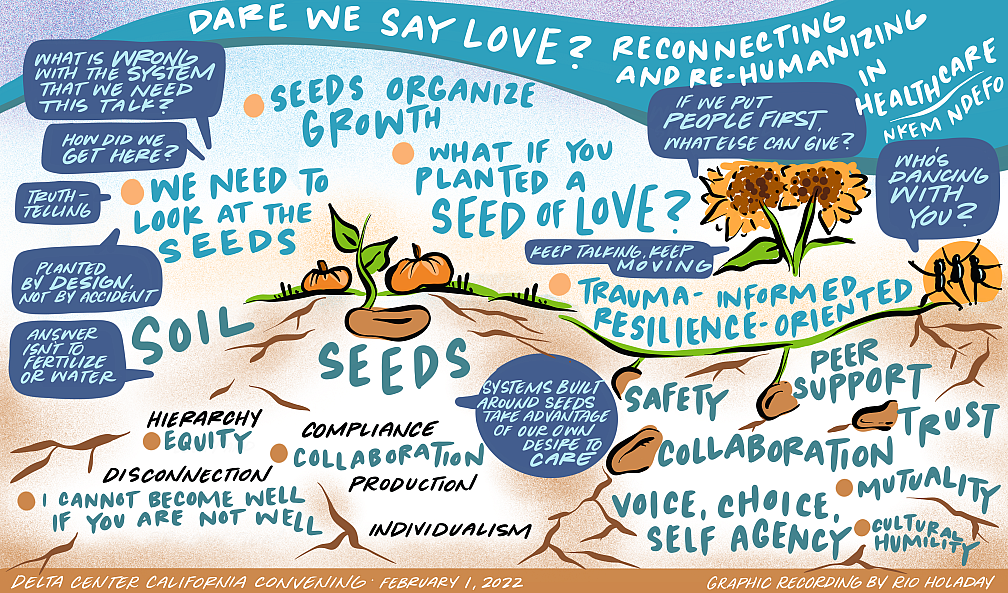 DARE WE SAY LOVE?
RECONNECTING
AND RE-HUMANIZING
IN
HEALTHCARE
NKEM NDEFO
WHAT IS WRONG
WITH THE SYSTEM
THAT WE NEED
THIS TALK?
HOW DID WE
GET HERE?
TRUTH-
TELLING
PLANTED
BY DESIGN,
NOT BY ACCIDENT
ANSWER
ISN'T TO
FERTILIZE
OR WATER
SEEDS ORGANIZE
GROWTH
WE NEED TO
LOOK AT THE
SEEDS
WHAT IF YOU
PLANTED A
SEED OF LOVE?
IF WE PUT
PEOPLE FIRST,
WHAT ELSE CAN GIVE?
WHO'S
DANCING
WITH
YOU?
KEEP TALKING, KEEP
MOVING
TRAUMA-INFORMED,
RESILIENCE-ORIENTED
SOIL
SEEDS
HIERARCHY
EQUITY
DISCONNECTION
I CANNOT BECOME WELL
IF YOU ARE NOT WELL
COMPLIANCE
COLLABORATION
PRODUCTION
INDIVIDUALISM
SYSTEMS BUILT
AROUND SEEDS
TAKE ADVANTAGE
OF OUR OWN
DESIRE TO
CARE
SAFETY
PEER
SUPPORT
TRUST
COLLABORATION
MUTUALITY
VOICE, CHOICE,
SELF AGENCY
CULTURAL
HUMILITY
DELTA CENTER CALIFORNIA CONVENING · FEBRUARY 1, 2022
GRAPHIC RECORDING BY RIO HOLADAY